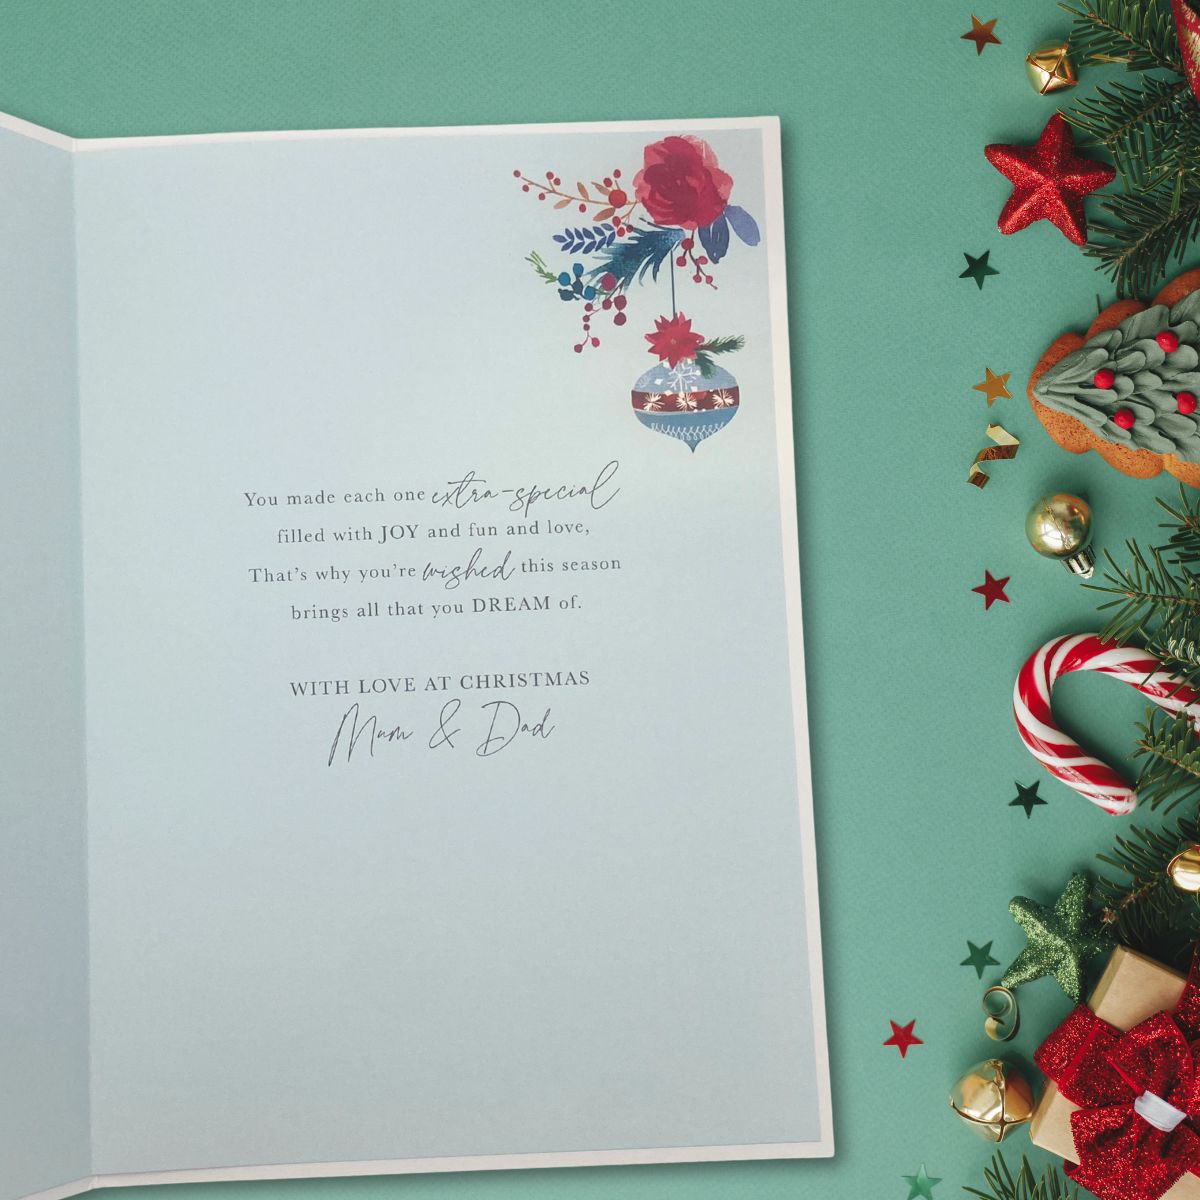 You made each one extra-special
filled with JOY and fun and love,
That's why you're wished this season
brings all that you DREAM of.
WITH LOVE AT CHRISTMAS
Mum & Dad